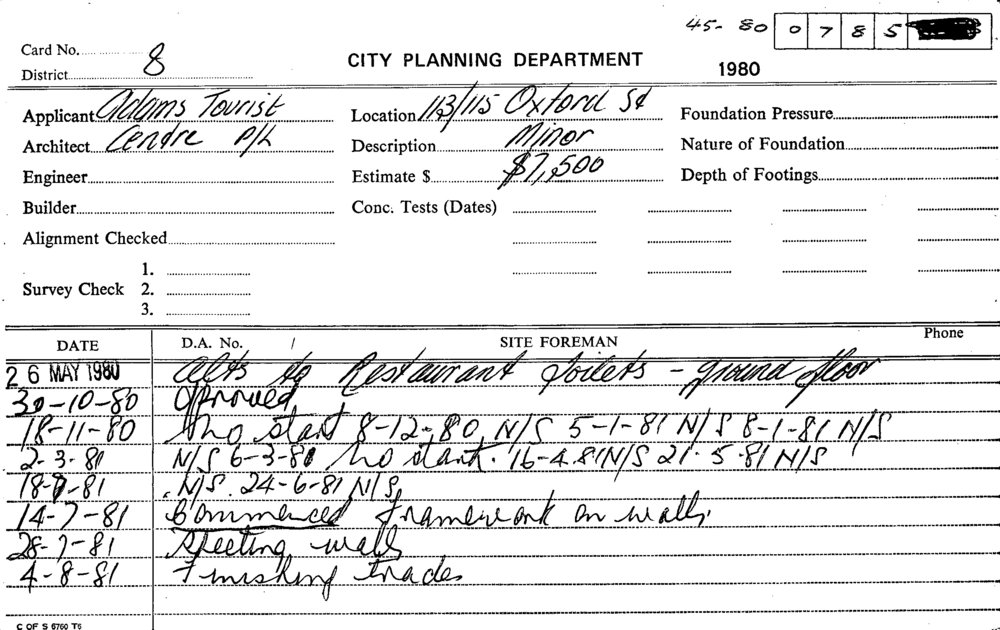 45-80 0785
Card No. 8
District
CITY PLANNING DEPARTMENT
1980
Applicant Adams Tourist
Location 113/115 Oxford St
Foundation Pressure
Architect Centre P/L
Description Minor
Nature of Foundation
Engineer
Estimate $ $7,500
Depth of Footings
Builder
Conc. Tests (Dates)
Alignment Checked
1.
Survey Check 2.
3.
DATE D.A. No. / SITE FOREMAN Phone
26 MAY 1980 Alts to Restaurant Toilets - ground floor
30-10-80 Approved
18-11-80 No start 8-12-80 N/S 5-1-81 N/S 8-1-81 N/S
2-3-81 N/S 6-3-81 No start. 16-4-81 N/S 21-5-81 N/S
81 N/S. 24-6-81 N/S
14-7-81 Commenced framework on walls.
28-7-81 Sheeting walls
4-8-81 Finishing trades
C OF S 6760 T6